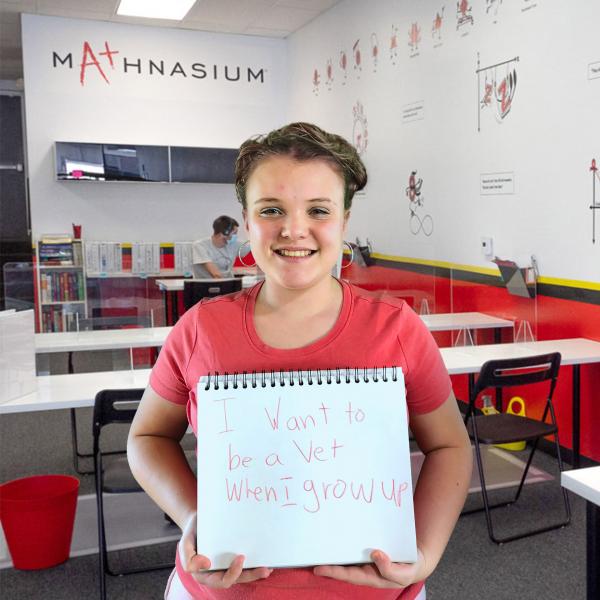 MA+HNASIUM
I Want to
be a Vet
When I grow up